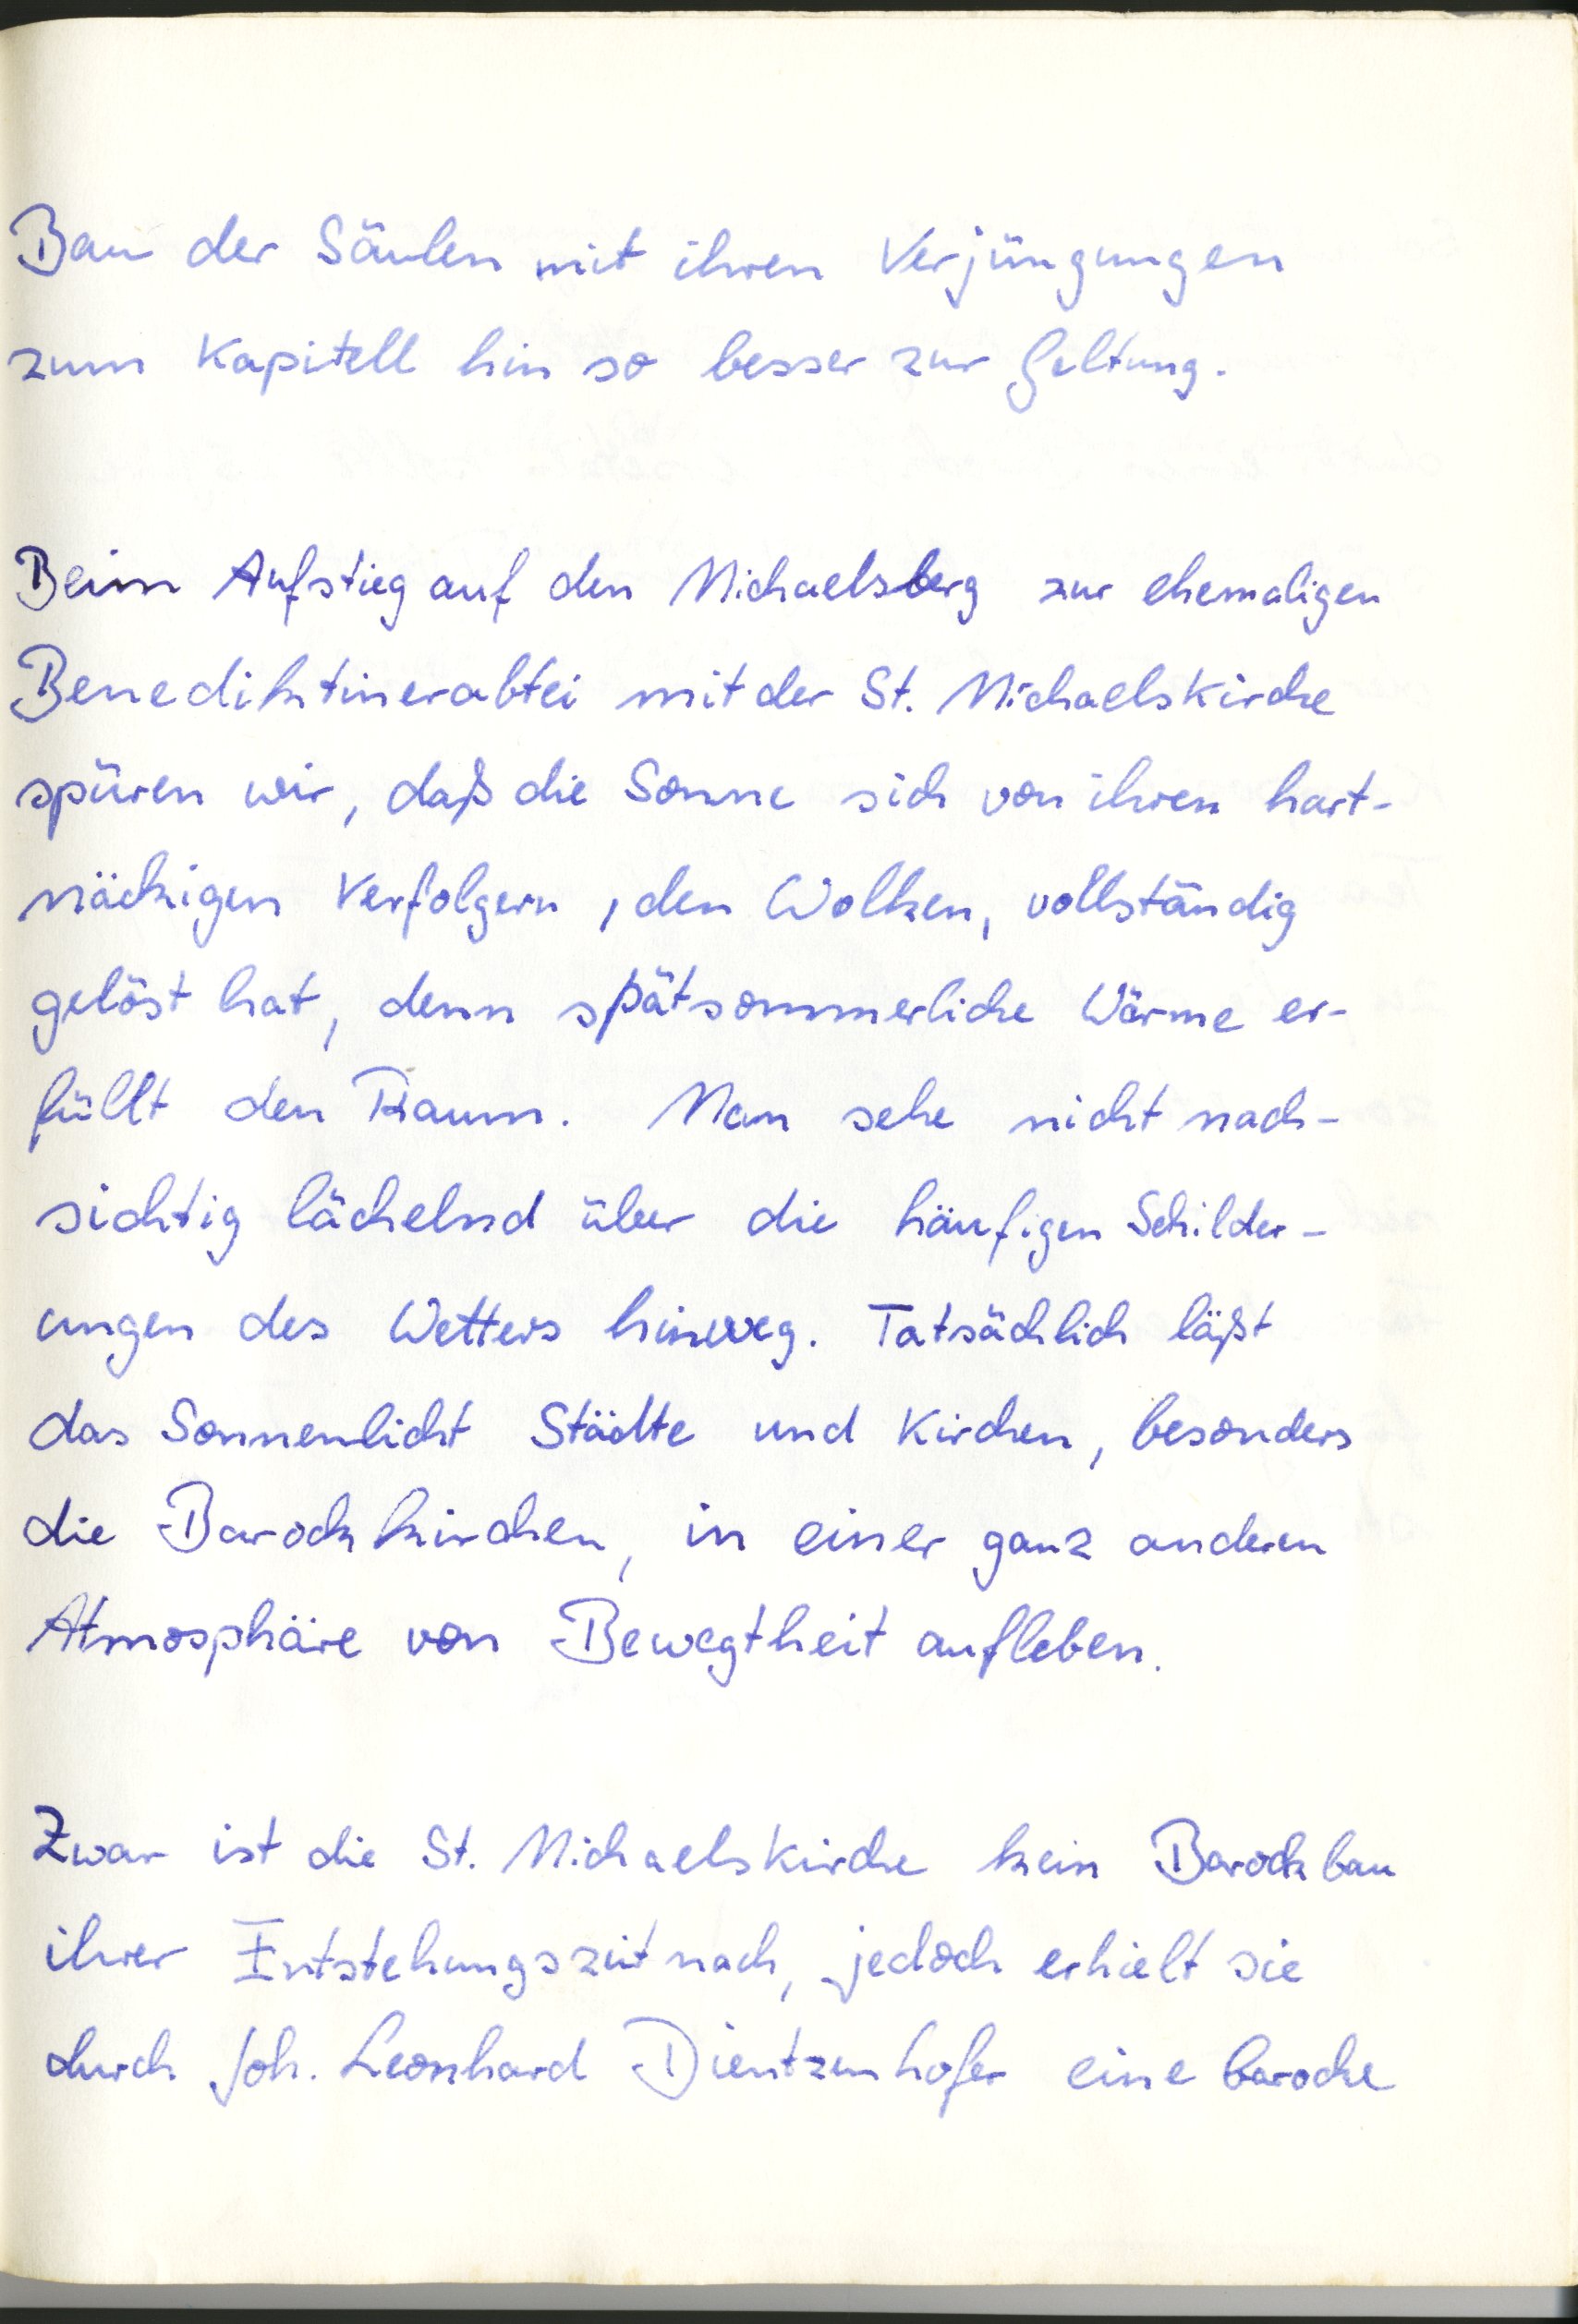 Bau der Säulen mit ihren Verjüngungen
zum Kapitell hin so besser zur Geltung.
Beim Aufstieg auf den Michaelsberg zur ehemaligen
Benediktinerabtei mit der St. Michaelskirche
spüren wir, daß die Sonne sich von ihren hart-
näckigen Verfolgern, den Wolken, vollständig
gelöst hat, denn spätsommerliche Wärme er-
füllt den Raum. Man sehe nicht nach-
sichtig lächelnd über die häufigen Schilder-
ungen des Wetters hinweg. Tatsächlich läßt
das Sonnenlicht Städte und Kirchen, besonders
die Barockkirchen, in einer ganz anderen
Atmosphäre von Bewegtheit aufleben.
Zwar ist die St. Michaelskirche kein Barockbau
ihrer Entstehungszeit nach, jedoch erhielt sie
durch Joh. Leonhard Dientzenhofer eine barocke